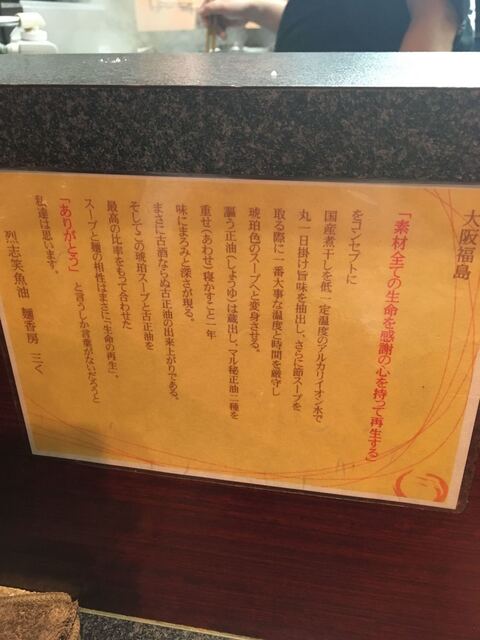 大阪福島
「素材全ての生命を感謝の心を持って再生する」
をコンセプトに
国産煮干しを低一定温度のアルカリイオン水で
丸一日掛け旨味を抽出し、さらに節スープを
取る際に一番大事な温度と時間を厳守し
琥珀色のスープへと変身させる。
謳う正油(しょうゆ)は蔵出し、マル秘正油二種を
重せ(あわせ)寝かすこと一年
味にまろみと深さが現る。
まさに古酒ならぬ古正油の出来上がりである。
そしてこの琥珀スープと古正油を
最高の比率をもって合わせた
スープと麺の相性はまさに「生命の再生」
「ありがとう」 と言うしか言葉がないだろうと
私達は思います。
烈志笑魚油 麺香房 三く